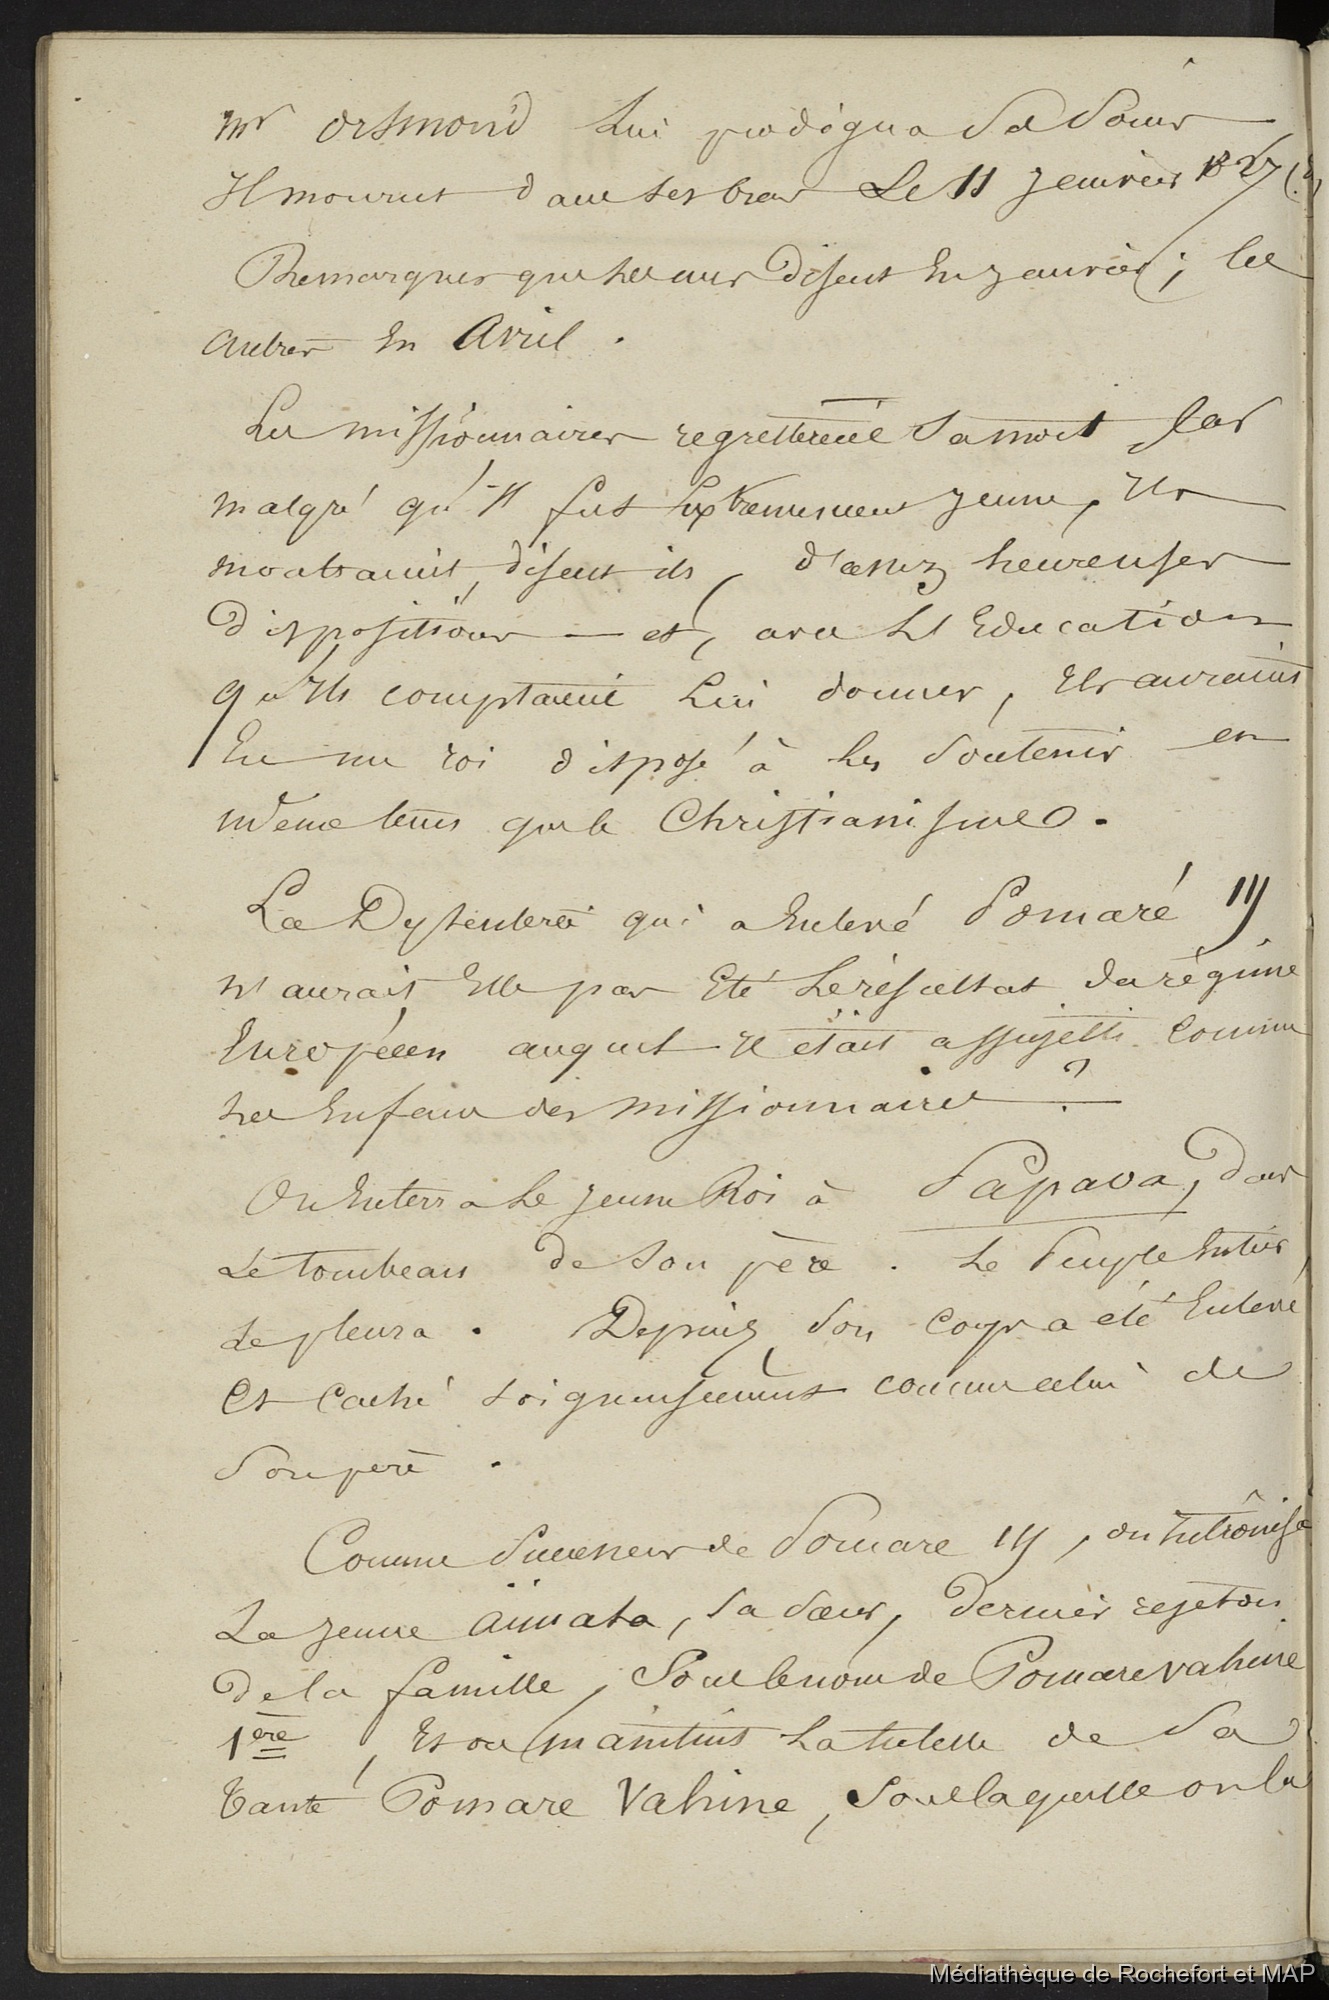 Mr Orsmond lui prodigua ses soins
Il mourut dans ses bras le 11 Janvier 1827
Remarquer que les uns disent en Janvier; les
autres en Avril.
Les missionnaires regrettèrent sa mort car
malgré qu'il fut extrêmement jeune, Ils
montraient, disent ils, d'assez heureuses
dispositions — et, avec l'Education
qu'ils comptaient lui donner, Ils auraient
Eu un roi disposé à les soutenir en
même tems que le Christianisme.
La Dyssenterie qui a Enlevé Pomaré III
n'aurait Elle pas Eté le résultat du régime
Européen auquel il était assujetti comme
les Enfans des missionnaires?
On Enterra le jeune Roi à Papava, dans
le tombeau de son père. Le Peuple Entier
le pleura. Depuis, son corps a été Enlevé
et caché soigneusement comme celui de
son père.
Comme successeur de Pomare III, on Intrônisa
la jeune Aïmata, sa sœur, dernier rejeton
de la famille, sous le nom de Pomare vahine
1ère, Et on maintint la tutelle de sa
tante Pomare Vahine, sous laquelle on la
Médiathèque de Rochefort et MAP